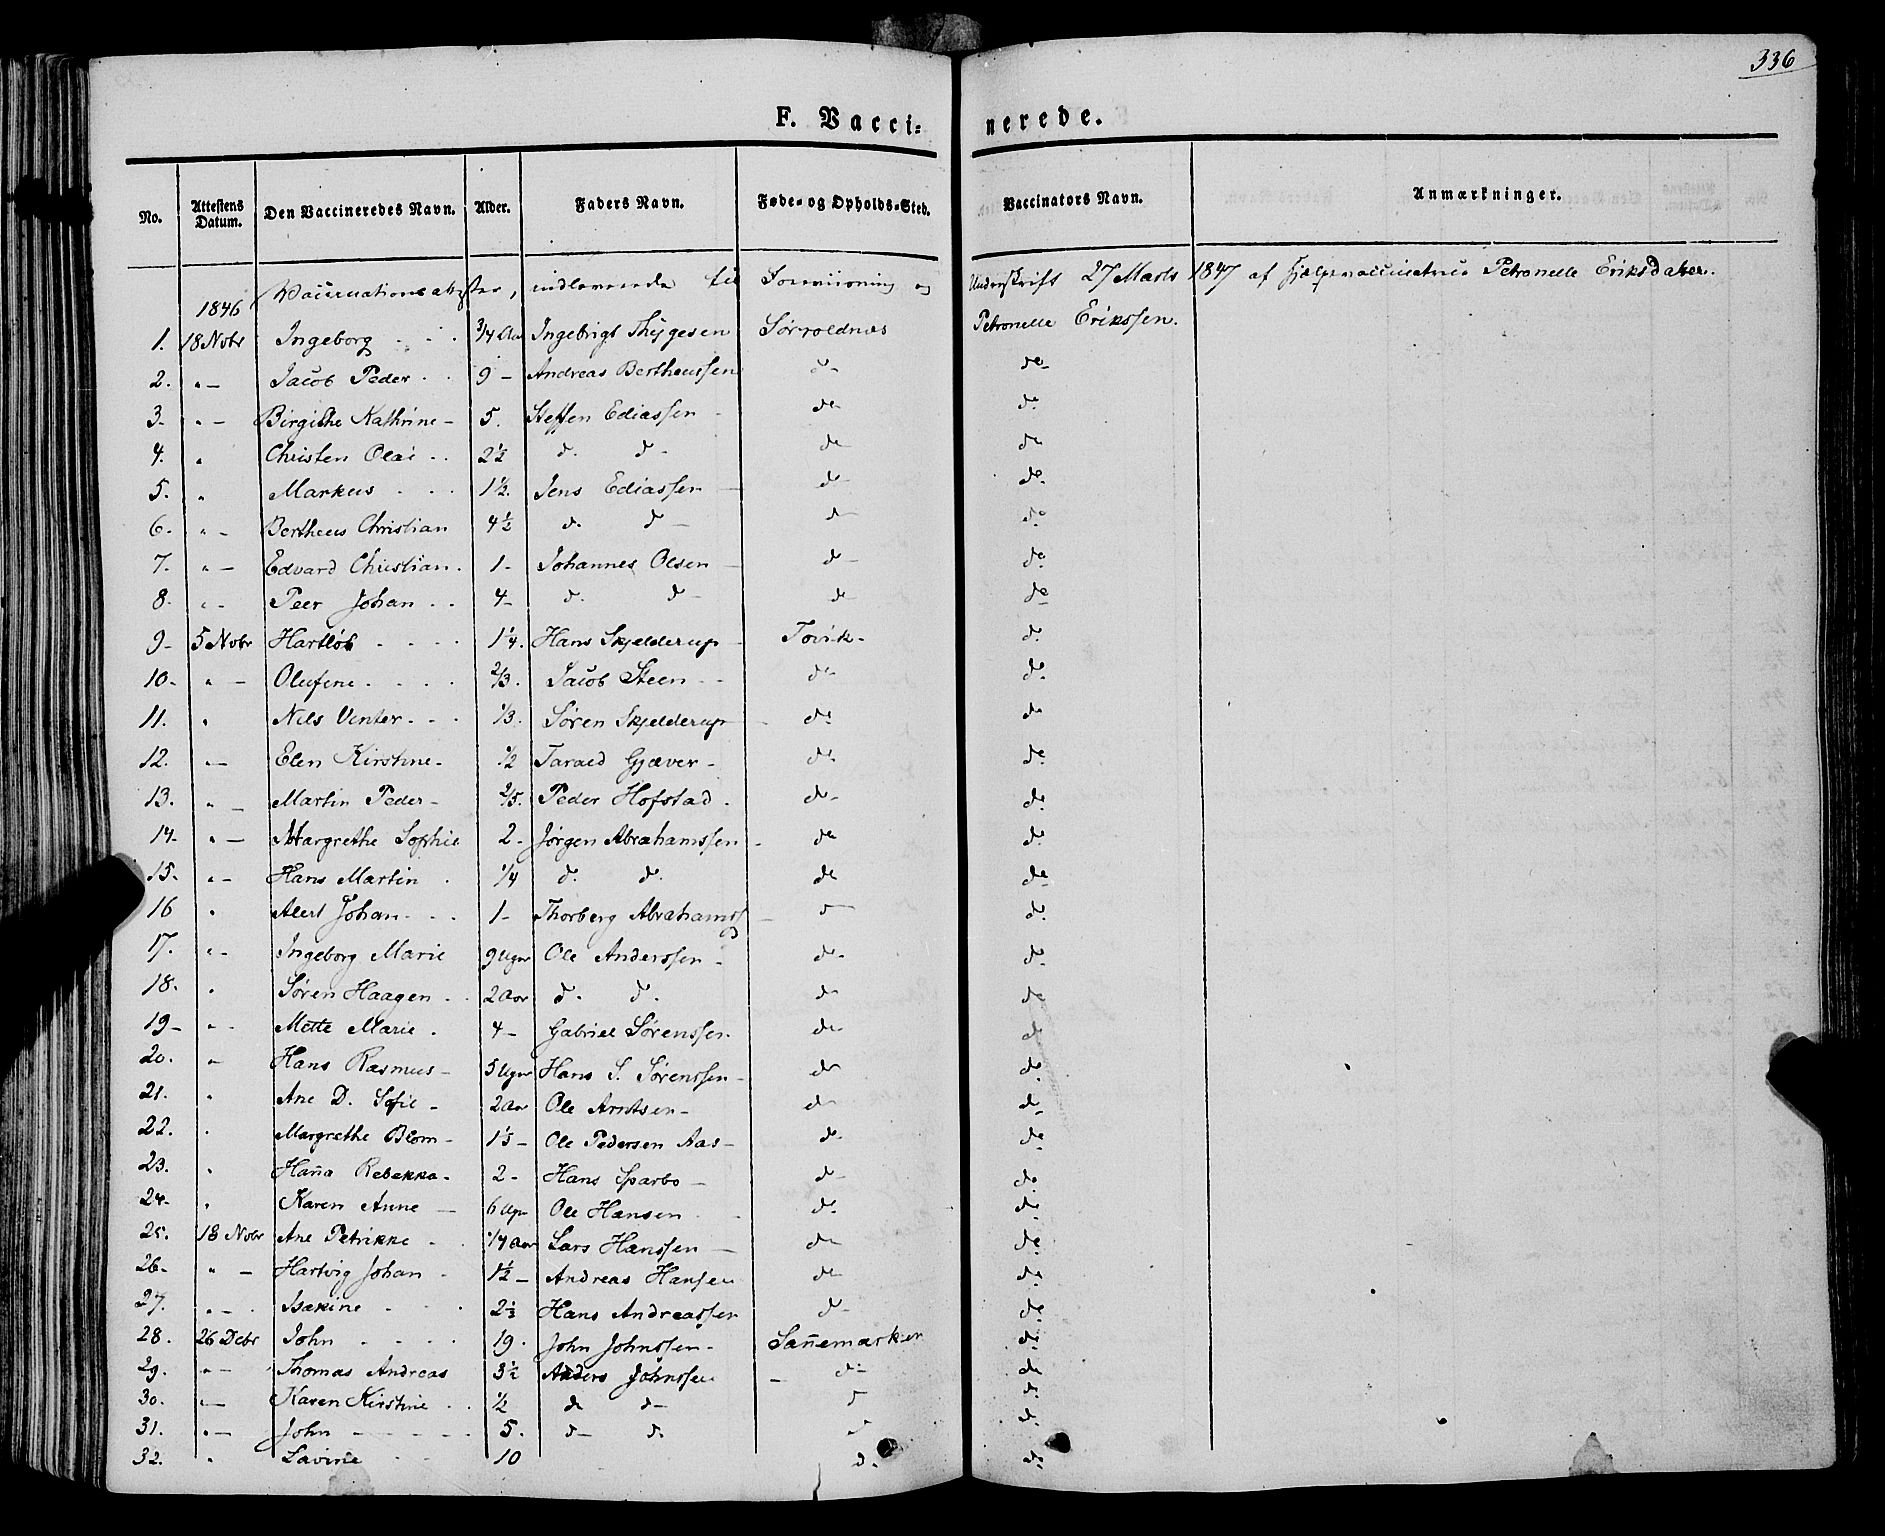 336
F. Vacci=nerede.
No. Attestens Datum. Den Vaccineredes Navn. Alder. Faders Navn. Føde- og Opholds-Sted. Vaccinators Navn. Anmærkninger.
Vaccinationsattester, indleverede til og Underskrift 27 Marts 1847 af Petronelle Eriksdatter.
1846
1. 18 Nobr Ingeborg 3/4 Aar Ingebrigt Thygesen Sørroldnæs Petronelle Erikssen.
2. " — Jacob Peder 9 — Andreas Bertheussen d° d°
3. " — Birgithe Kathrine 5. Steffen Ediassen d° d°
4. " Christen Olai 2½ d° d° d° d°
5. " Markus 1½. Jens Ediassen d° d°
6. " — Bertheus Christian 4½ d° d° d° d°
7. " — Edvard Christian. 1 - Johannes Olsen d° d°
8. " - Peer Johan 4 - d° d° d° d°
9 - 5 Nobr Hartløb 1¼. Hans Skjelderup Tovik d°
10 - " — Olufine 2/3. Jacob Steen d° d°
11. " Nils Vinter 1/3. Søren Skjelderup d° d°
12. " — Elen Kirstine - ½ Tarald Gjæver - d° d°
13. " — Martin Peder - 2/5. Peder Hofstad. d° d°
14 - " — Margrethe Sophie 2 - Jørgen Abrahamssen d° d°
15. " — Hans Martin ¼ d° d° d° d°
16 " Alert Johan 1 - Thorberg Abrahamss d° d°
17. " - Ingeborg Marie 9 Uger Ole Anderssen d° d°
18. " Søren Haagen 2 Aar d° d° d° d°
19 - " - Mette Marie. 4 - Gabriel Sørenssen d° d°
20. " Hans Rasmus - 5 Uger Hans S. Sørenssen - d° d°
21. " Ane D. Sofie - 2 Aar Ole Arntsen - d° d°
22. " Margrethe Blom - 1⅓ - Ole Pedersen Aas - d° d°
23. " Han̄a Rebekka - 2 - Hans Sparbo — d° d°
24 - " Karen Anne — 6 Uger Ole Hansen d° d°
25. 18 Nobr Ane Petrikke - ¼ Aar Lars Hanssen d° d°
26 - " — Hartvig Johan 1½ - Andreas Hansen d° d°
27. " — Isakine 2⅓ Hans Andreassen d° d°
28. 26 Debr John 19. John Johnssen - San̄emarken d°
29. " — Thomas Andreas 3½ Anders Johnssen d° d°
30. " — Karen Kirstine ½ d° d° d° d°
31. " — John 5. d° d° d° d°
32. " Lavine 10 d° d°